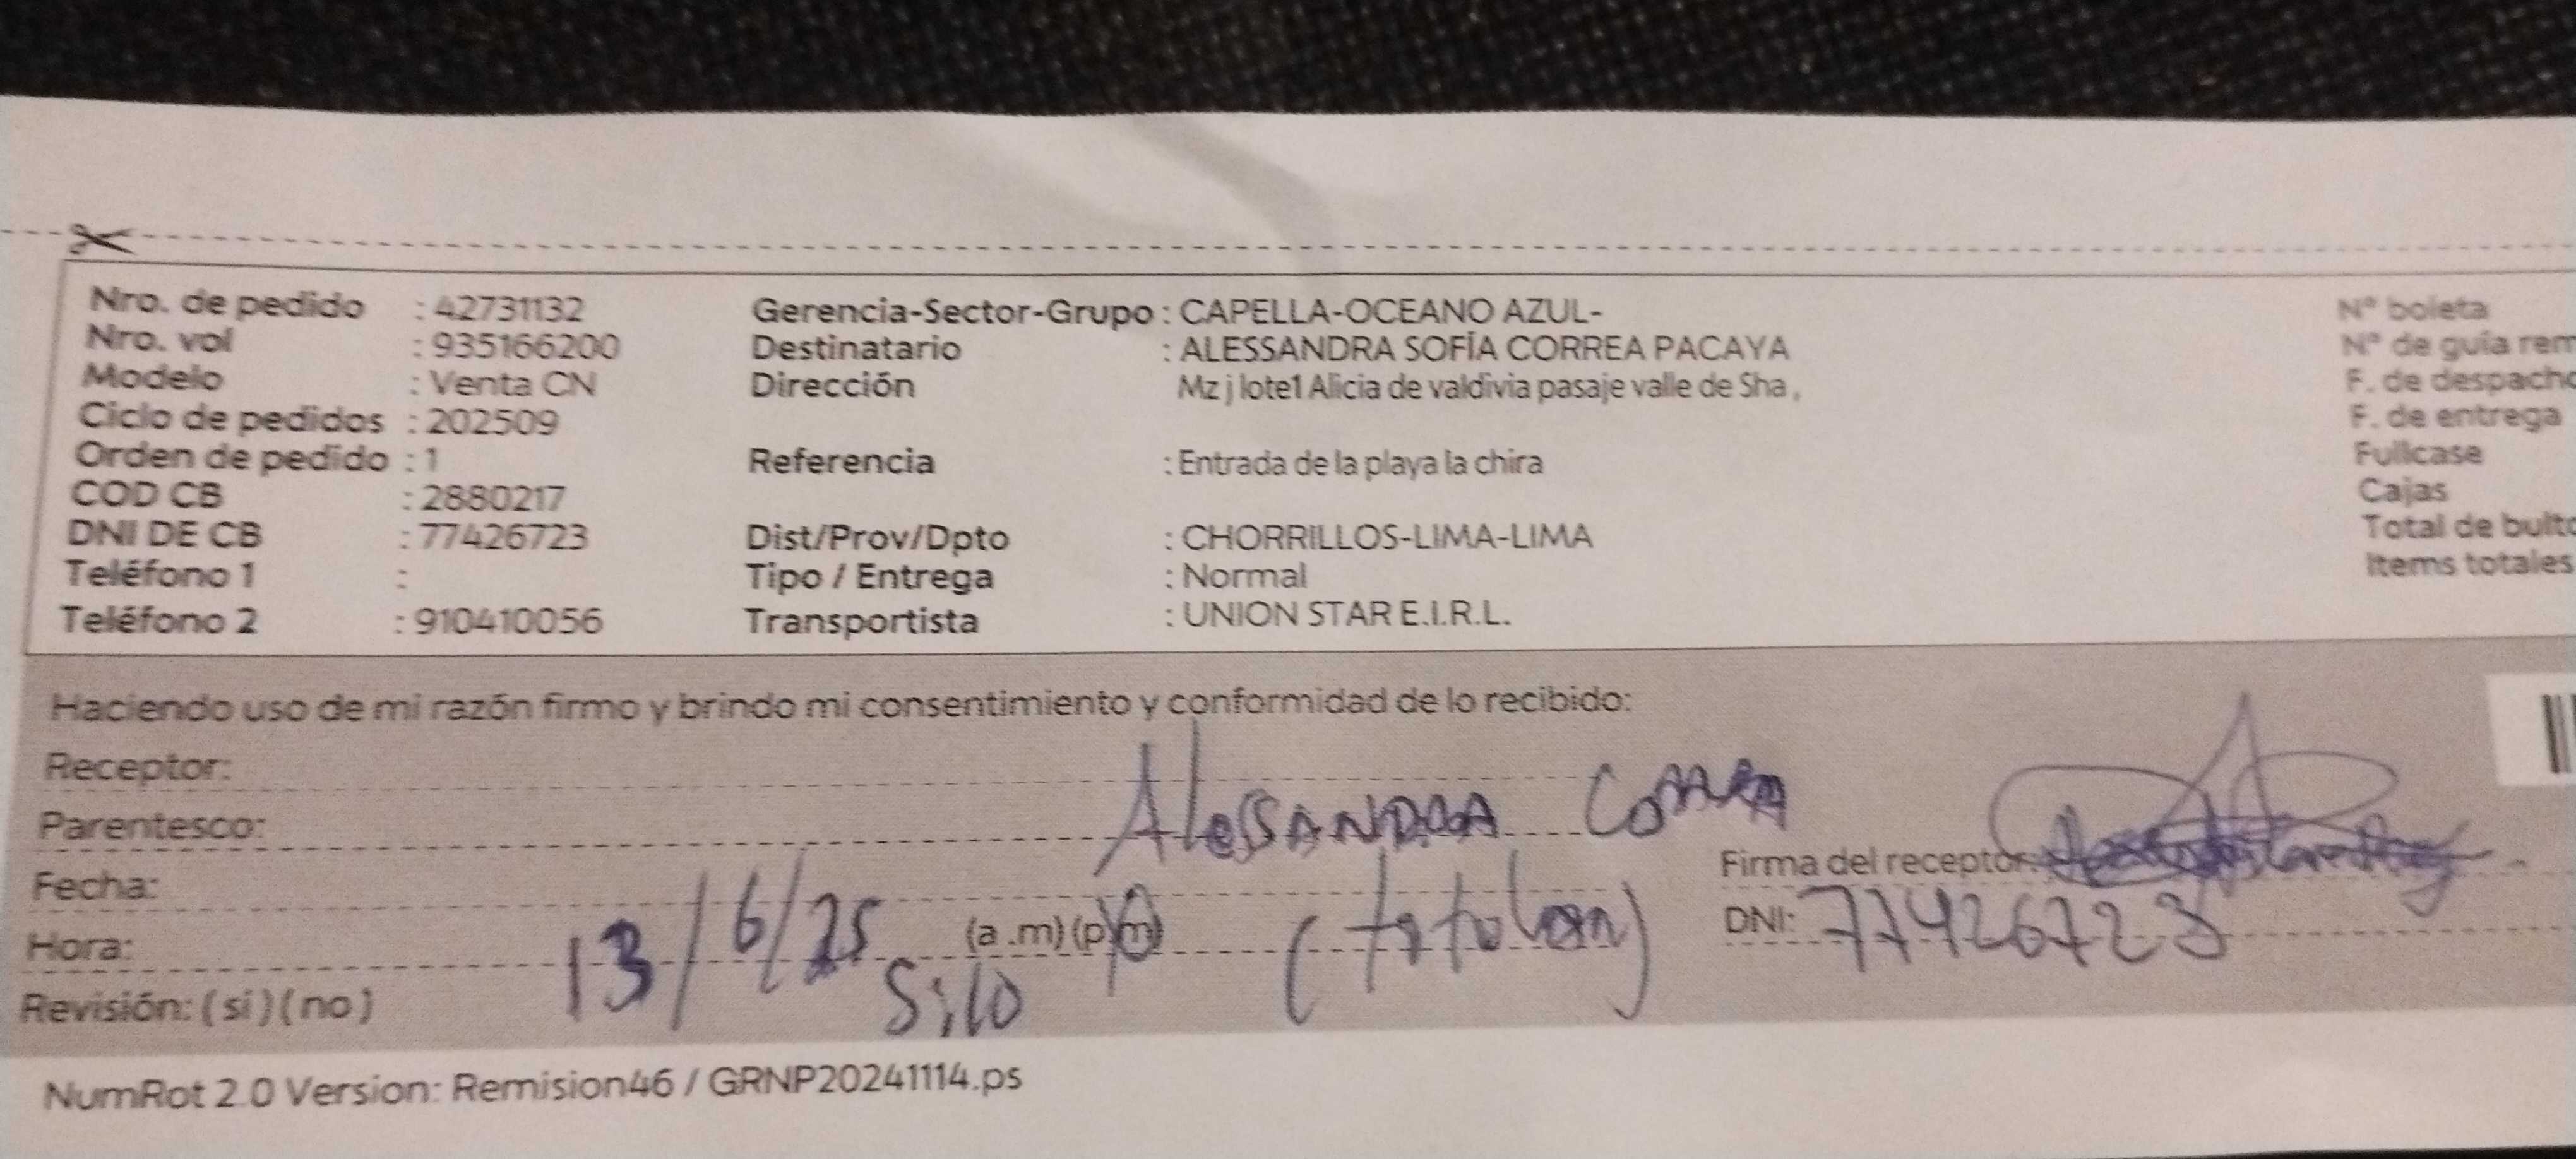 Nro. de pedido : 42731132 Gerencia-Sector-Grupo : CAPELLA-OCEANO AZUL- N° boleta
Nro. vol : 935166200 Destinatario : ALESSANDRA SOFÍA CORREA PACAYA N° de guía rem
Modelo : Venta CN Dirección Mz j lote1 Alicia de valdivia pasaje valle de Sha , F. de despacho
Ciclo de pedidos : 202509 F. de entrega
Orden de pedido : 1 Referencia : Entrada de la playa la chira Fullcase
COD CB : 2880217 Cajas
DNI DE CB : 77426723 Dist/Prov/Dpto : CHORRILLOS-LIMA-LIMA Total de bulto
Teléfono 1 : Tipo / Entrega : Normal Items totales
Teléfono 2 : 910410056 Transportista : UNION STAR E.I.R.L.
Haciendo uso de mi razón firmo y brindo mi consentimiento y conformidad de lo recibido:
Receptor:
Parentesco: Alessandra Correa
Fecha: Firma del receptor:
Hora: 13/6/25 (a .m) (p.m) DNI: 77426723
Revisión: ( si ) ( no )
NumRot 2.0 Version: Remision46 / GRNP20241114.ps